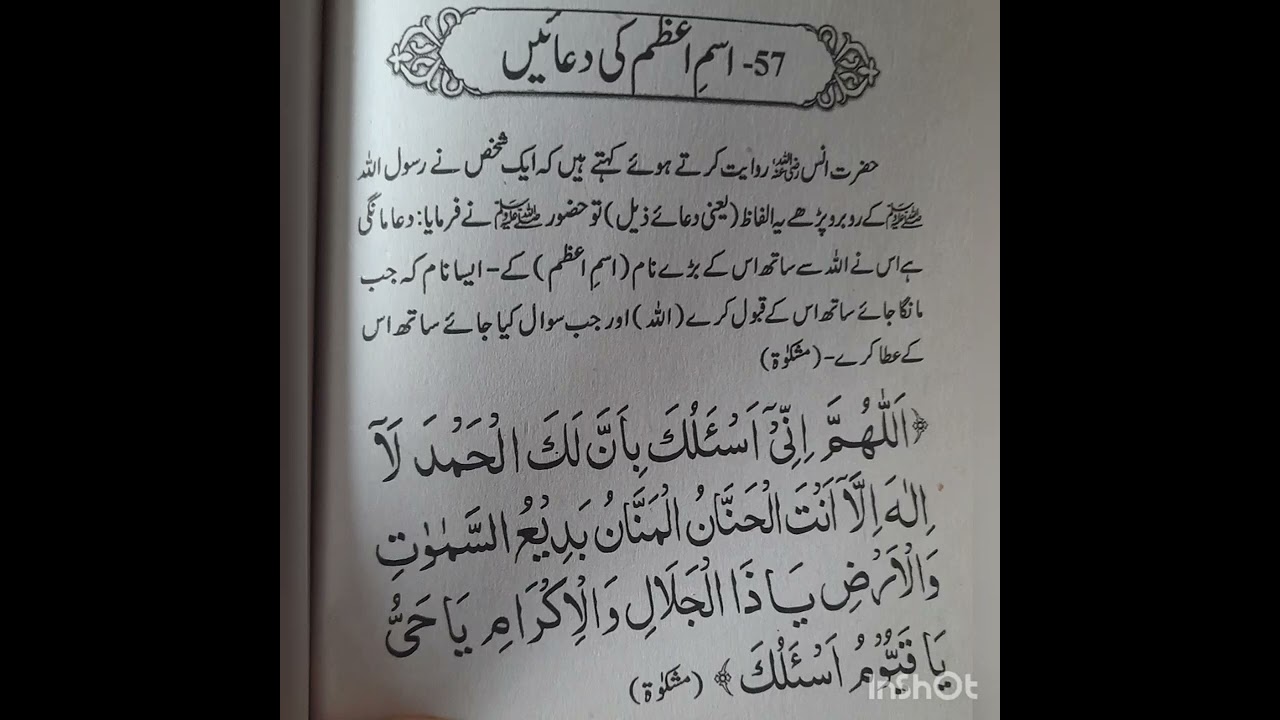 57- اسمِ اعظم کی دعائیں
حضرت انس رضی اللہ عنہ روایت کرتے ہوئے کہتے ہیں کہ ایک شخص نے رسول اللہ
ﷺ کے روبرو پڑھے یہ الفاظ (یعنی دعائے ذیل) تو حضور ﷺ نے فرمایا: دعا مانگی
ہے اس نے اللہ سے ساتھ اس کے بڑے نام (اسمِ اعظم) کے- ایسا نام کہ جب
مانگا جائے ساتھ اس کے قبول کرے (اللہ) اور جب سوال کیا جائے ساتھ اس
کے عطا کرے- (مشکوٰۃ)
﴿اَللّٰهُمَّ اِنِّیْٓ اَسْئَلُكَ بِاَنَّ لَكَ الْحَمْدَ لَآ
اِلٰهَ اِلَّآ اَنْتَ الْحَنَّانُ الْمَنَّانُ بَدِیْعُ السَّمٰوٰتِ
وَالْاَرْضِ یَا ذَا الْجَلَالِ وَالْاِكْرَامِ یَا حَیُّ
یَا قَیُّوْمُ اَسْئَلُكَ﴾ (مشکوٰۃ)
InShOt